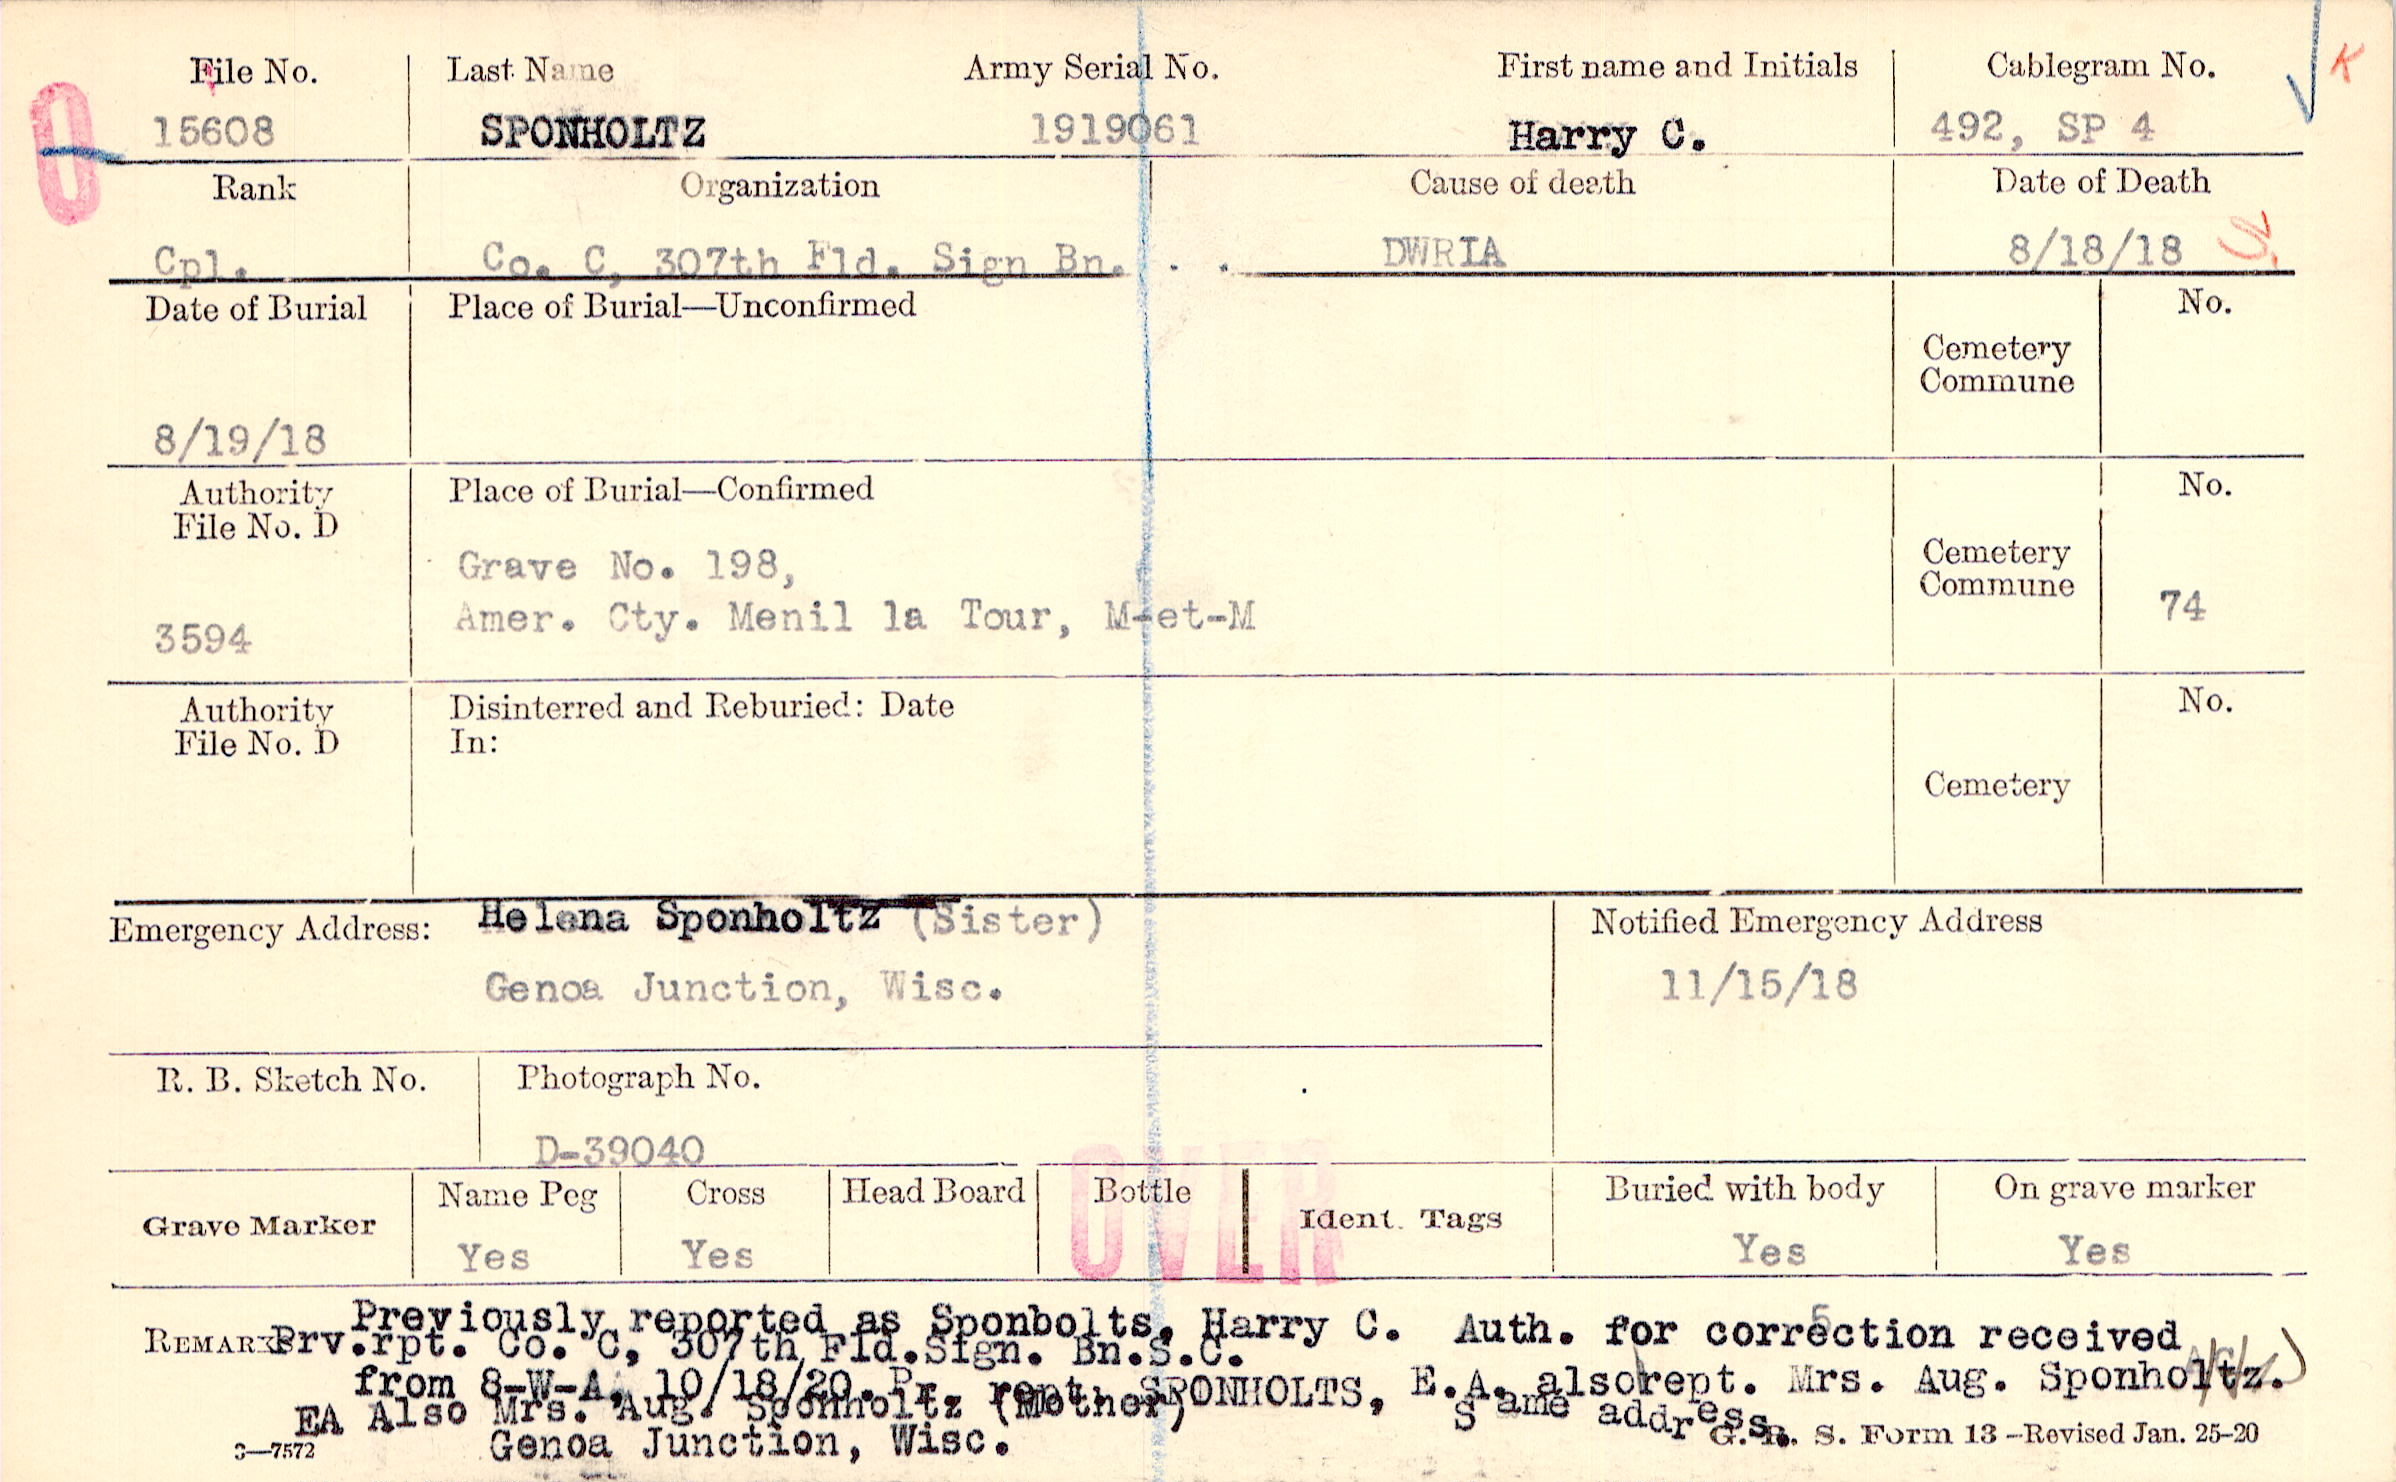 File No. Last Name Army Serial No. First name and Initials Cablegram No.
K
15608 SPONHOLTZ 1919061 Harry C. 492, SP 4
Rank Organization Cause of death Date of Death
Cpl. Co. C, 307th Fld. Sign Bn. . . DWRIA 8/18/18
Date of Burial Place of Burial—Unconfirmed No.
Cemetery
Commune
8/19/18
Authority Place of Burial—Confirmed No.
File No. D
Grave No. 198, Cemetery
Commune
3594 Amer. Cty. Menil la Tour, M-et-M 74
Authority Disinterred and Reburied: Date No.
File No. D In:
Cemetery
Emergency Address: Helena Sponholtz (Sister) Notified Emergency Address
Genoa Junction, Wisc. 11/15/18
R. B. Sketch No. Photograph No.
D-39040
OVER
Grave Marker Name Peg Cross Head Board Bottle Ident. Tags Buried with body On grave marker
Yes Yes Yes Yes
Previously reported as Sponbolts, Harry C. Auth. for correction received
REMARKS Prv.rpt. Co. C, 307th Fld.Sign. Bn.S.C.
from 8-W-A, 10/18/20. Pr. rept. SPONHOLTS, E.A. also rept. Mrs. Aug. Sponholtz.
EA Also Mrs. Aug. Sponholtz (Mother) Same address.
Genoa Junction, Wisc.
3—7572 G. R. S. Form 13—Revised Jan. 25-20